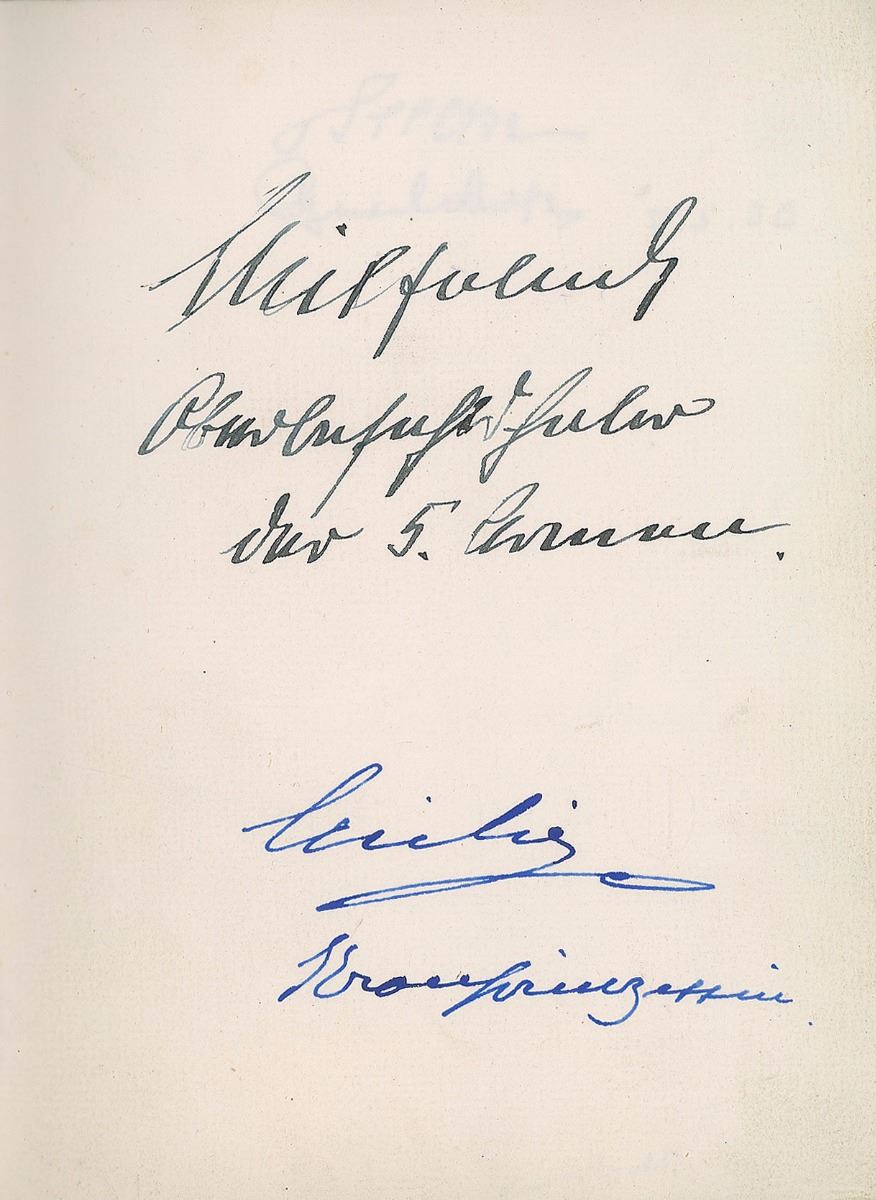 Wilhelm
Oberbefehlshaber
der 5. Armee.
Cecilie
Kronprinzessin.